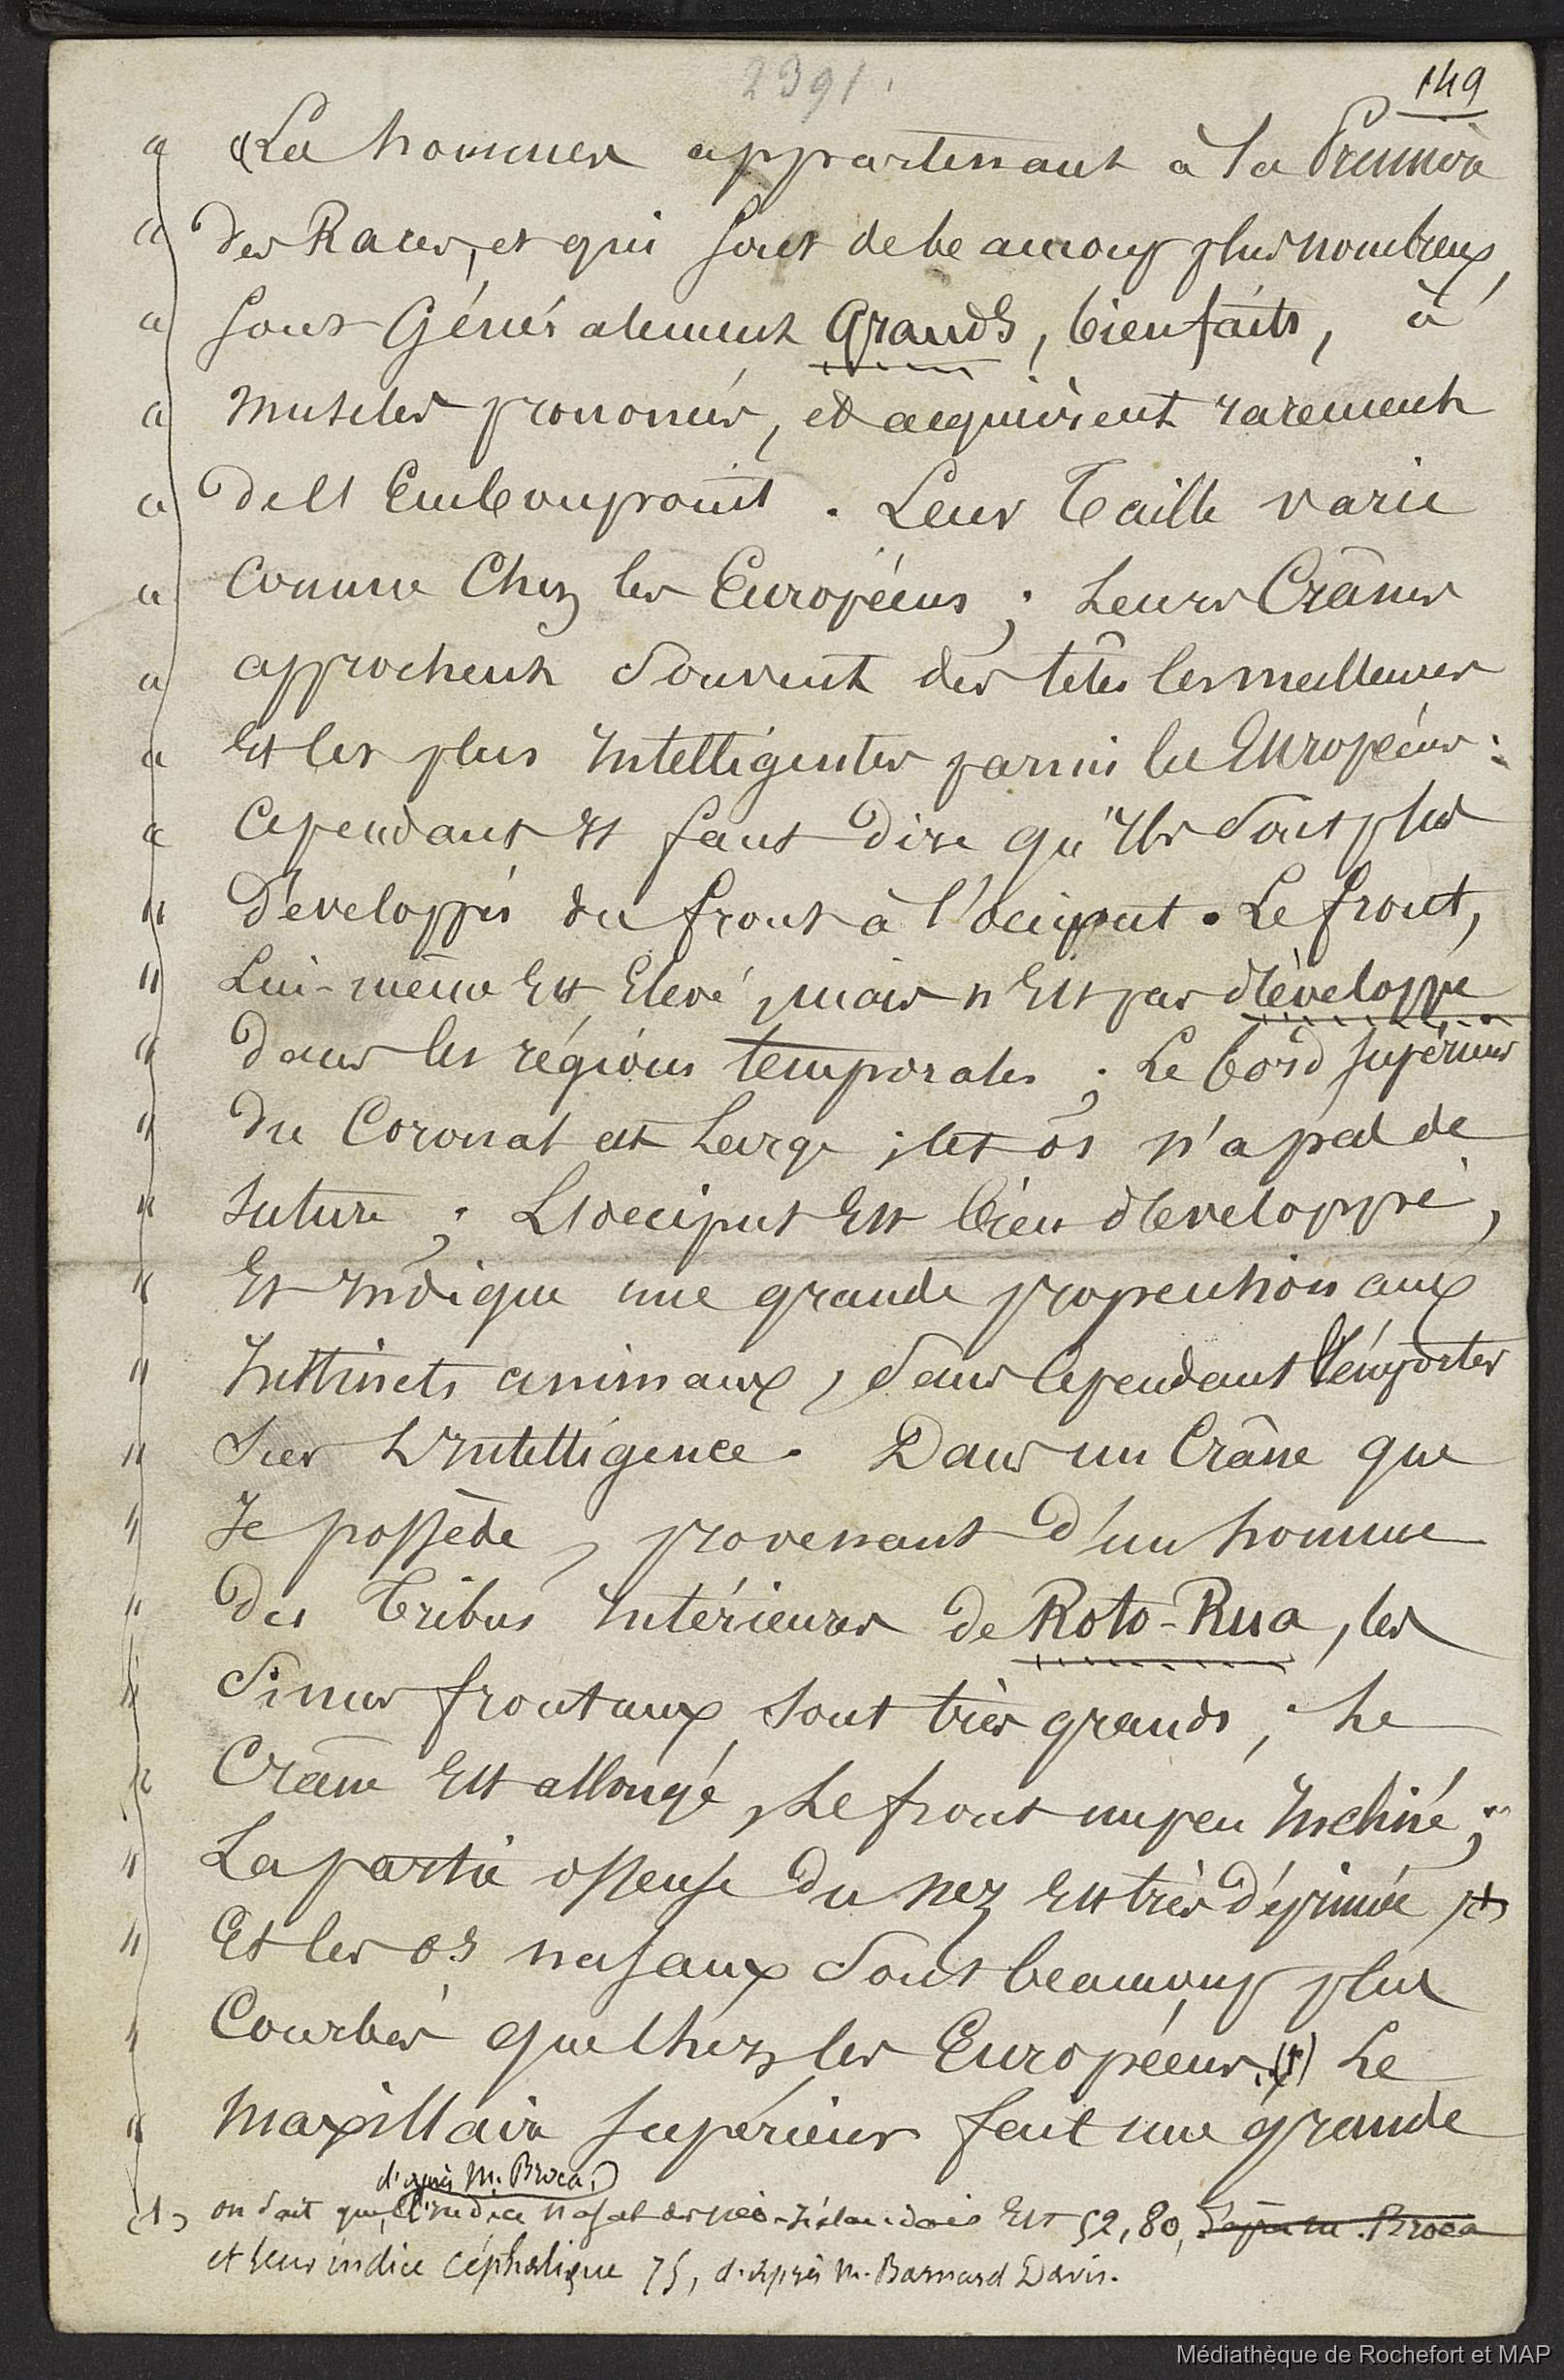 2391.
149
« « Les hommes appartenant à la Première
« des Races, et qui sont de beaucoup plus nombreux,
« sont Généralement Grands, bienfaits, à
« muscles prononcés, et acquièrent rarement
« de l'Embonpoint. Leur Taille varie
« Comme Chez les Européens ; Leurs Crânes
« approchent Souvent des têtes les meilleures
« Et les plus Intelligentes parmi les Européens :
« Cependant Il faut Dire qu'Ils Sont plus
" Développés du front à l'occiput. Le front,
" Lui-même Est Elevé, mais n'Est pas développé
" Dans les régions temporales ; Le bord supérieur
" Du Coronal est Large ; cet os n'a pas de
" suture ; L'occiput Est bien développé,
" Et Indique une grande propention aux
" Instincts animaux, Sans Cependant l'emporter
" Sur L'Intelligence. Dans un Crâne que
" Je possède, provenant D'un homme
" Des Tribus Intérieures de Roto-Rua, les
" Sinus frontaux sont très grands ; Le
" Crâne Est allongé, Le front un peu Incliné ;
" La partie osseuse Du nez Est très Déprimée,
" Et les os nasaux Sont beaucoup plus
" Courbés que Chez les Européens. (1) Le
" Maxillaire supérieur fait une grande
d'après M. Broca,
(1) on sait que l'indice nasal des néo-zélandais Est 52,80, d'après M. Broca
et leur indice céphalique 75, d'après M. Barnard Davis.
Médiathèque de Rochefort et MAP